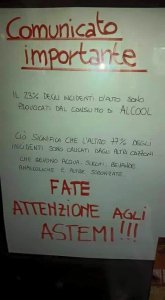 Comunicato
importante
IL 23% DEGLI INCIDENTI D'AUTO SONO
PROVOCATI DAL CONSUMO DI ALCOOL
CIÒ SIGNIFICA CHE L'ALTRO 77% DEGLI
INCIDENTI SONO CAUSATI DAGLI ALTRI CORRONI
CHE BEVONO ACQUA, SUCCHI, BEVANDE
ANALCOLICHE E ALTRE SCHIFEZZE
FATE
ATTENZIONE AGLI
ASTEMI!!!